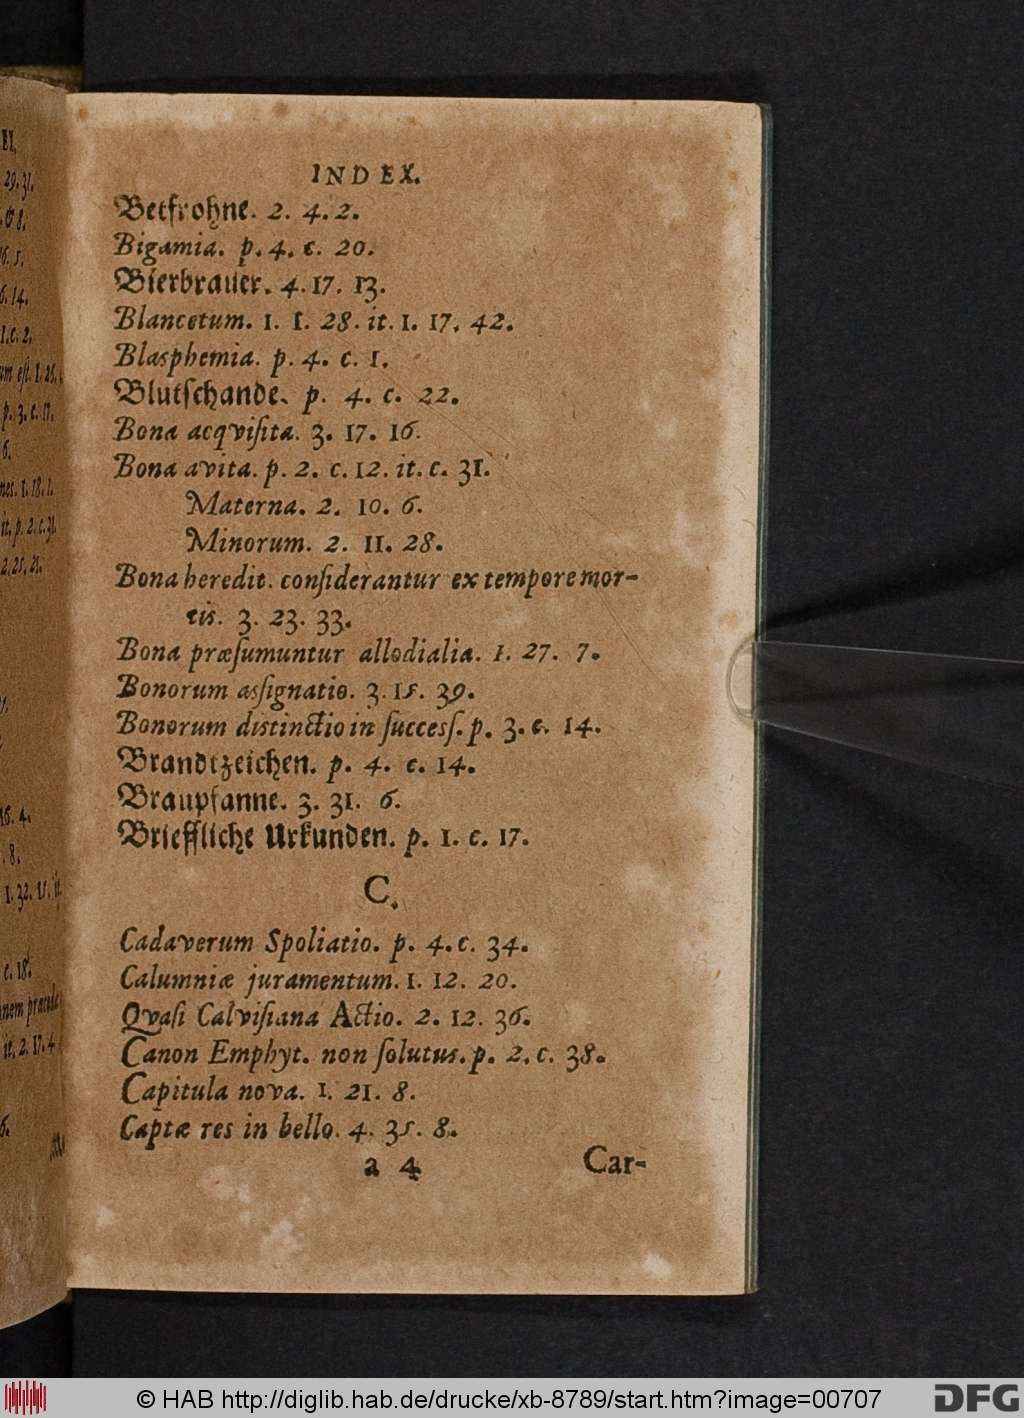 INDEX.
Betfrohne. 2. 4. 2.
Bigamia. p. 4. c. 20.
Bierbrauer. 4. 17. 13.
Blancetum. 1. 1. 28. it. 1. 17. 42.
Blasphemia. p. 4. c. 1.
Blutſchande. p. 4. c. 22.
Bona acqviſita. 3. 17. 16.
Bona avita. p. 2. c. 12. it. c. 31.
Materna. 2. 10. 6.
Minorum. 2. 11. 28.
Bona heredit. conſiderantur ex tempore mor-
tis. 3. 23. 33.
Bona præſumuntur allodialia. 1. 27. 7.
Bonorum asſignatio. 3. 15. 39.
Bonorum distinctio in ſucceſſ. p. 3. c. 14.
Brandtzeichen. p. 4. c. 14.
Braupfanne. 3. 31. 6.
Brieffliche Urkunden. p. 1. c. 17.
C.
Cadaverum Spoliatio. p. 4. c. 34.
Calumniæ juramentum. 1. 12. 20.
Qvaſi Calviſiana Actio. 2. 12. 36.
Canon Emphyt. non ſolutus. p. 2. c. 38.
Capitula nova. 1. 21. 8.
Captæ res in bello. 4. 35. 8.
a 4 Car-
© HAB http://diglib.hab.de/drucke/xb-8789/start.htm?image=00707
DFG